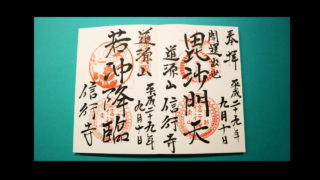 奉拝
平成二十九年
九月十日
開運出世
毘沙門天
道源山
信行寺
若冲降臨
道源山
平成二十九年
九月十日
信行寺